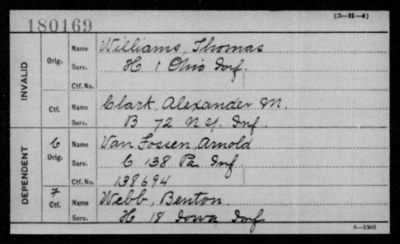 180169
(3-H-4)
INVALID
Orig. Name Williams, Thomas
Serv. H 1 Ohio Inf.
Ctf. No.
Ctf. Name Clark, Alexander M.
Serv. B 72 N.Y. Inf
DEPENDENT
6 Orig. Name Van Fossen, Arnold
Serv. C 138 Pa Inf
Ctf. No. 138694
7 Ctf. Name Webb, Benton.
Serv. H 18 Iowa Inf